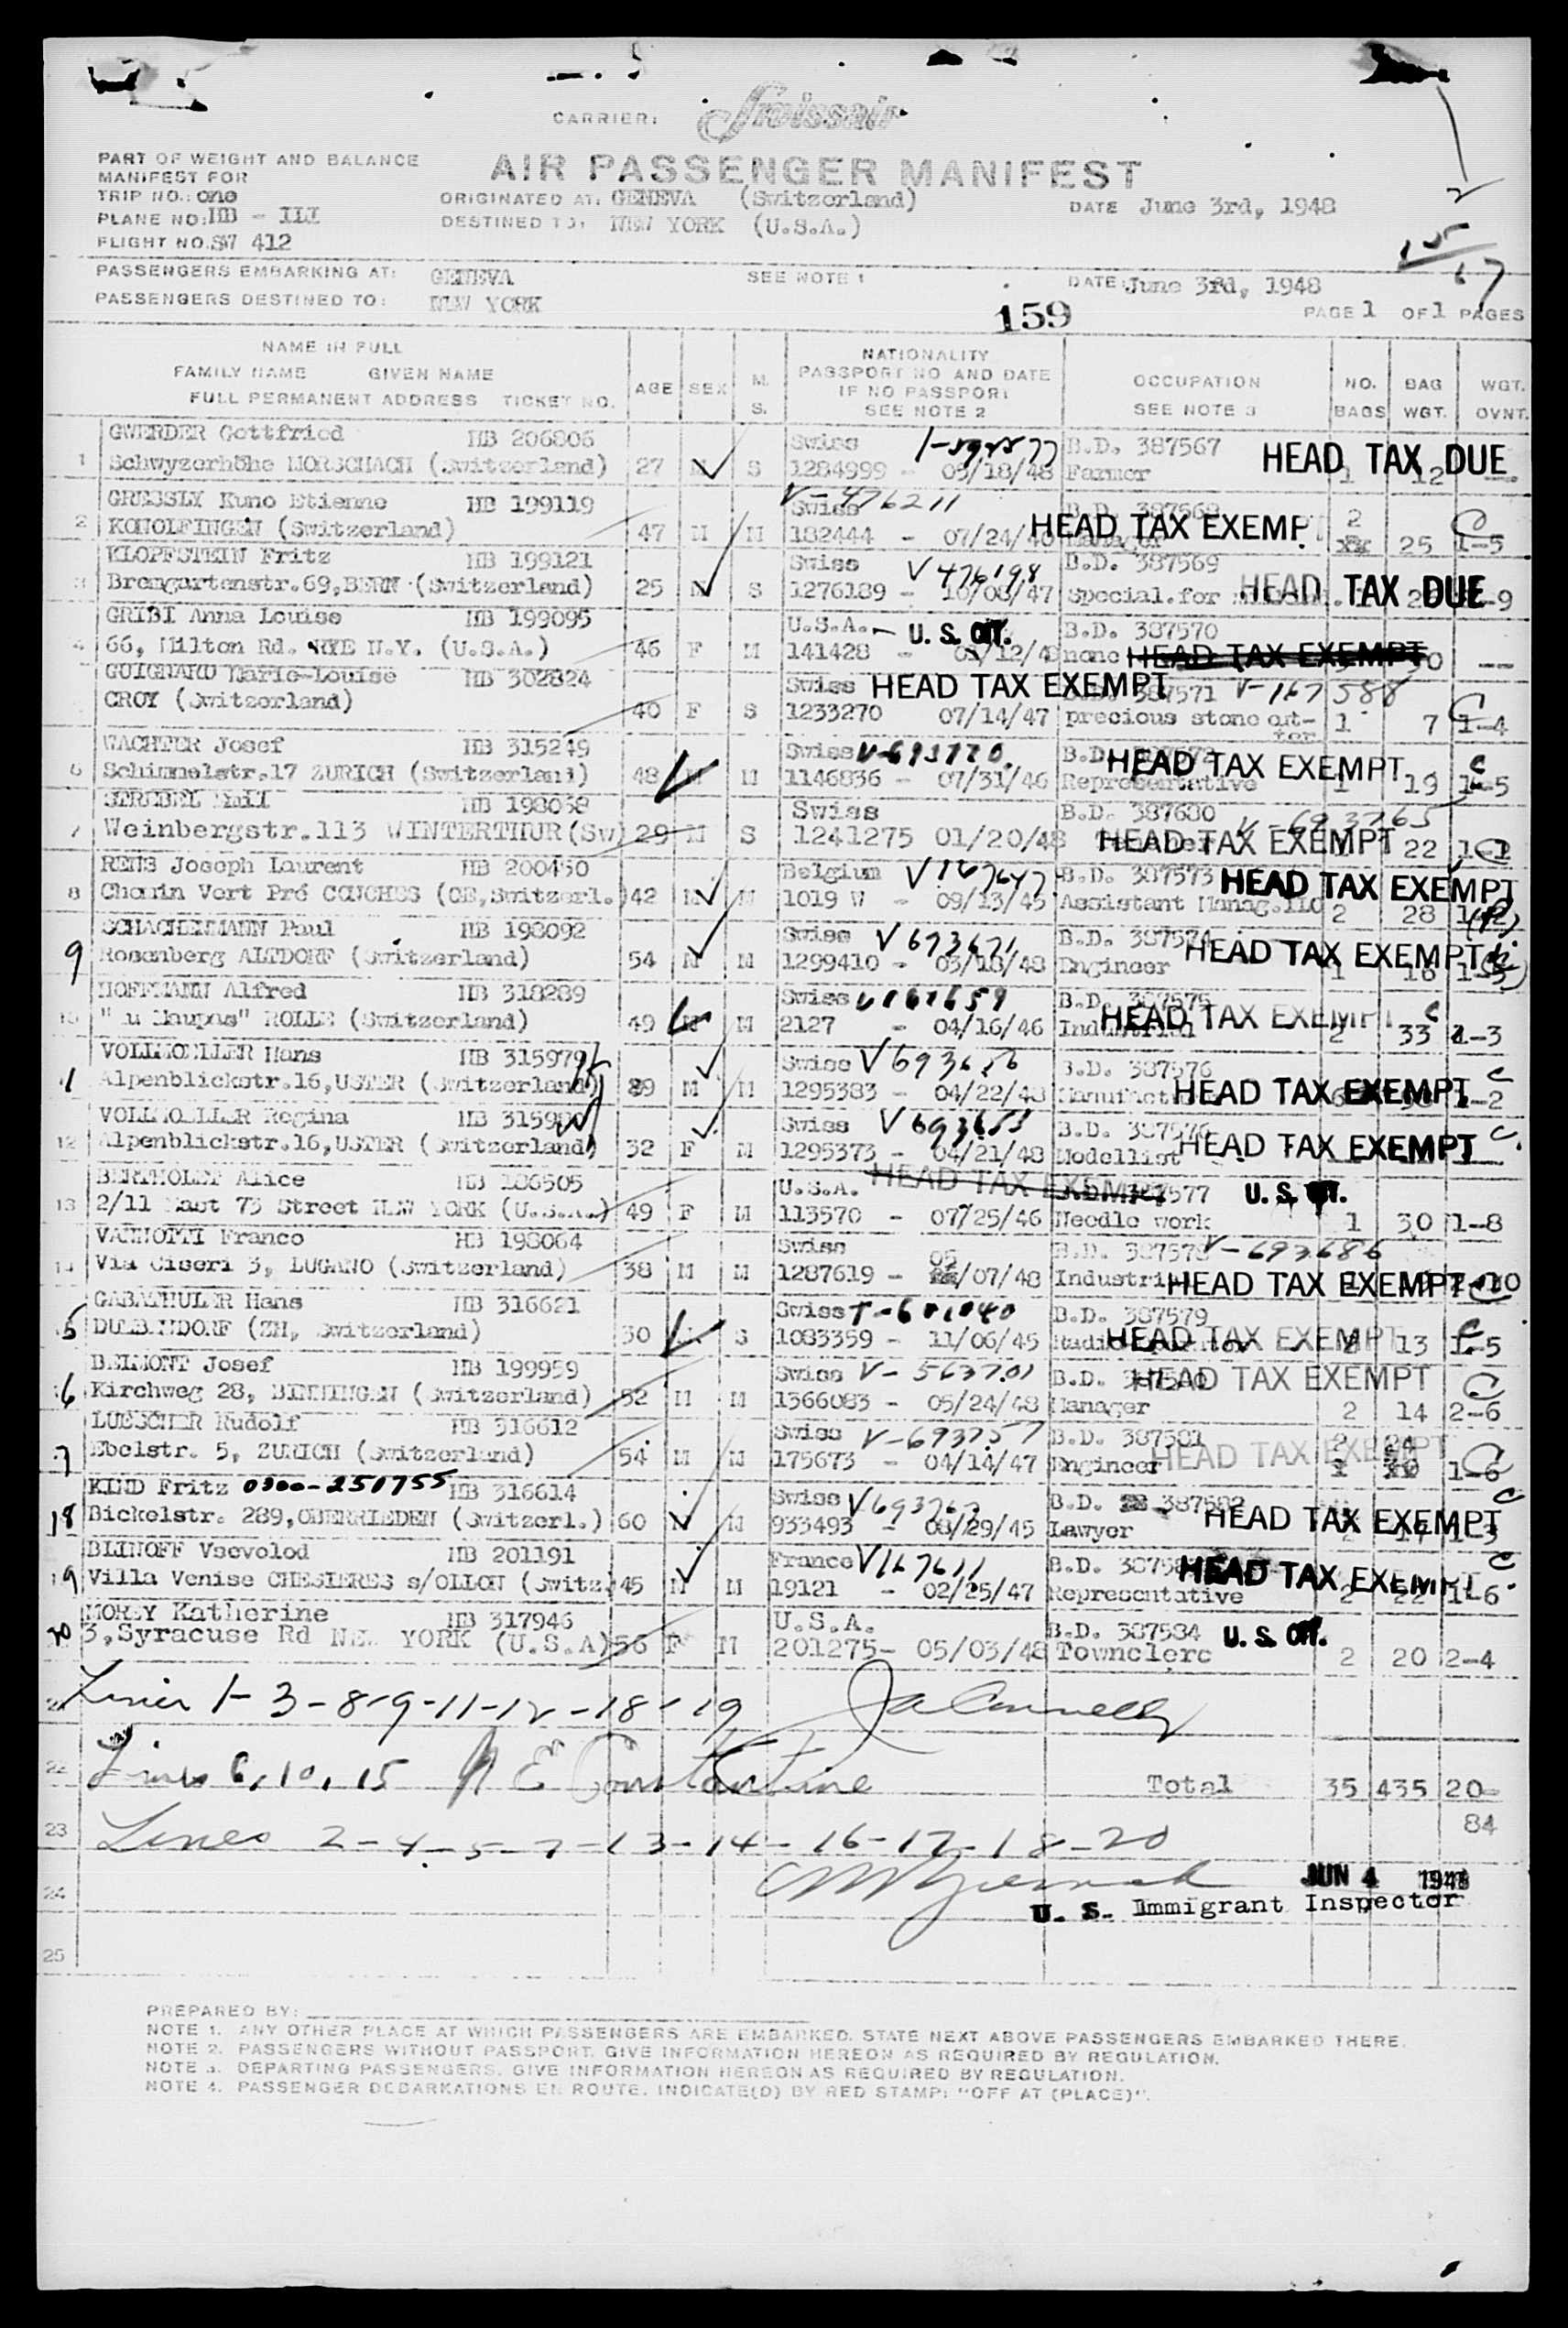 CARRIER: Swissair
PART OF WEIGHT AND BALANCE
MANIFEST FOR
AIR PASSENGER MANIFEST
TRIP NO.: one
ORIGINATED AT: GENEVA (Switzerland)
DATE June 3rd, 1948
PLANE NO: HB - ILI
DESTINED TO: NEW YORK (U.S.A.)
FLIGHT NO. SW 412
2
15
17
PASSENGERS EMBARKING AT: GENEVA SEE NOTE 1 DATE: June 3rd, 1948
PASSENGERS DESTINED TO: NEW YORK 159 PAGE 1 OF 1 PAGES
NAME IN FULL
FAMILY NAME GIVEN NAME
FULL PERMANENT ADDRESS TICKET NO.
AGE SEX M. S.
NATIONALITY
PASSPORT NO AND DATE
IF NO PASSPORT
SEE NOTE 2
OCCUPATION
SEE NOTE 3
NO. BAGS
BAG WGT.
WGT. OVNT.
GWERDER Gottfried HB 206806 Swiss B.D. 387567 HEAD TAX DUE
1 Schwyzerhöhe MORSCHACH (Switzerland) 27 M S 1284999 - 03/18/48 Farmer 1 12
GRESSLY Kuno Etienne HB 199119 Swiss V-476211 B.D. 387568 HEAD TAX EXEMPT 2
2 KONOLFINGEN (Switzerland) 47 M M 182444 - 07/24/46 Manager 25 1-5
KLOPFSTEIN Fritz HB 199121 Swiss V 476198 B.D. 387569 HEAD TAX DUE
3 Bremgartenstr.69,BERN (Switzerland) 25 M S 1276189 - 10/08/47 Special.for
GRIBI Anna Louise HB 199095 U.S.A. - U. S. CIT. B.D. 387570
4 66, Milton Rd. RYE N.Y. (U.S.A.) 46 F M 141428 - none HEAD TAX EXEMPT --
GUIGNARD Marie-Louise HB 302824 Swiss HEAD TAX EXEMPT B.D. 387571 V-167588
CROY (Switzerland) 40 F S 1233270 07/14/47 precious stone cut-ter 1 7 1-4
WACHTER Josef HB 315249 Swiss V-693720 B.D. HEAD TAX EXEMPT C
6 Schimmelstr.17 ZURICH (Switzerland) 48 M M 1146836 - 07/31/46 Representative 1 19 1-5
STREBEL Emil HB 198038 Swiss B.D. 387680 V-693765
7 Weinbergstr.113 WINTERTHUR(Sw) 29 M S 1241275 01/20/48 HEAD TAX EXEMPT 22 1-1
RENS Joseph Laurent HB 200450 Belgium V167647 B.D. 387573 HEAD TAX EXEMPT
8 Chemin Vert Pré CONCHES (GE,Switzerl.) 42 M M 1019 W - 09/13/45 Assistant Manag.ILO 2 28
SCHACHENMANN Paul HB 198092 Swiss V693671 B.D. 387574 HEAD TAX EXEMPT
9 Rosenberg ALTDORF (Switzerland) 54 M M 1299410 - 03/18/48 Engineer 1 16
HOFFMANN Alfred HB 318289 Swiss V167659 B.D. 387575 HEAD TAX EXEMPT C
10 "Au Maupas" ROLLE (Switzerland) 49 M M 2127 - 04/16/46 Industrial 2 33 1-3
VOLLMOELLER Hans HB 315979 Swiss V693656 B.D. 387576 HEAD TAX EXEMPT C
11 Alpenblickstr.16,USTER (Switzerland) 39 M M 1295383 - 04/22/48 1-2
VOLLMOELLER Regina HB 315980 Swiss V693655 B.D. 387576 HEAD TAX EXEMPT C.
12 Alpenblickstr.16,USTER (Switzerland) 32 F M 1295373 - 04/21/48 Modellist
BERTHOLET Alice HB 186505 U.S.A. HEAD TAX EXEMPT 387577 U. S. CIT.
13 2/11 East 73 Street NEW YORK (U.S.A.) 49 F M 113570 - 07/25/46 Needle work 1 30 1-8
VANNOTTI Franco HB 198064 Swiss 05 B.D. 387578 V-693686
14 Via Ciseri 3, LUGANO (Switzerland) 38 M M 1287619 - /07/48 HEAD TAX EXEMPT
GABATHULER Hans HB 316621 Swiss T-601040 B.D. 387579 C
15 DUEBENDORF (ZH, Switzerland) 30 M S 1083359 - 11/06/45 HEAD TAX EXEMPT 13 1-5
BELMONT Josef HB 199959 Swiss V-563701 B.D. HEAD TAX EXEMPT C
16 Kirchweg 28, BINNINGEN (Switzerland) 52 M M 1366083 - 05/24/48 Manager 2 14 2-6
LUESCHER Rudolf HB 316612 Swiss V-693757 B.D. 387581 HEAD TAX EXEMPT 2 24 C
17 Ebelstr. 5, ZURICH (Switzerland) 54 M M 175673 - 04/14/47 Engineer 1-6
KIND Fritz 0300-251755 HB 316614 Swiss V693767 B.D. 387582 HEAD TAX EXEMPT C
18 Bickelstr. 289,OBERRIEDEN (Switzerl.) 60 M M 933493 - 08/29/45 Lawyer 1-3
BLINOFF Vsevolod HB 201191 France V167611 B.D. 38758 HEAD TAX EXEMPT C
19 Villa Venise CHESIERES s/OLLON (Switz.) 45 M M 19121 - 02/25/47 Representative 2 22 1-6
MOREY Katherine HB 317946 U.S.A. B.D. 387584 U. S. CIT.
20 3,Syracuse Rd NEW YORK (U.S.A) 56 F M 201275- 05/03/48 Townclerc 2 20 2-4
21 Lines 1-3-8-9-11-12-18-19 JaConnelly
22 Lines 6, 10, 15 N E Constantine Total 35 435 20-
23 Lines 2-4-5-7-13-14-16-17-18-20 84
24 JUN 4 1948
U. S. Immigrant Inspector
25
PREPARED BY:
NOTE 1. ANY OTHER PLACE AT WHICH PASSENGERS ARE EMBARKED. STATE NEXT ABOVE PASSENGERS EMBARKED THERE.
NOTE 2. PASSENGERS WITHOUT PASSPORT. GIVE INFORMATION HEREON AS REQUIRED BY REGULATION.
NOTE 3. DEPARTING PASSENGERS. GIVE INFORMATION HEREON AS REQUIRED BY REGULATION.
NOTE 4. PASSENGER DEBARKATIONS EN ROUTE. INDICATE(D) BY RED STAMP: "OFF AT (PLACE)".